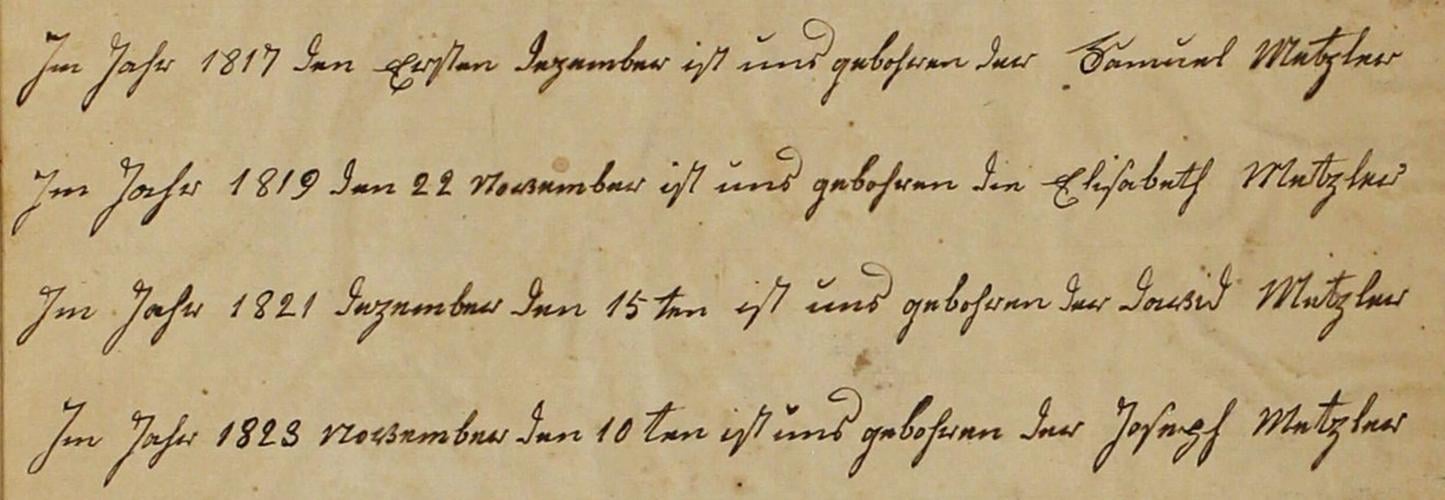 Im Jahr 1817 den Ersten dezember ist uns gebohren der Samuel Metzler
Im Jahr 1819 den 22 November ist uns gebohren die Elisabeth Metzler
Im Jahr 1821 dezember den 15ten ist uns gebohren der david Metzler
Im Jahr 1823 November den 10ten ist uns gebohren der Joseph Metzler